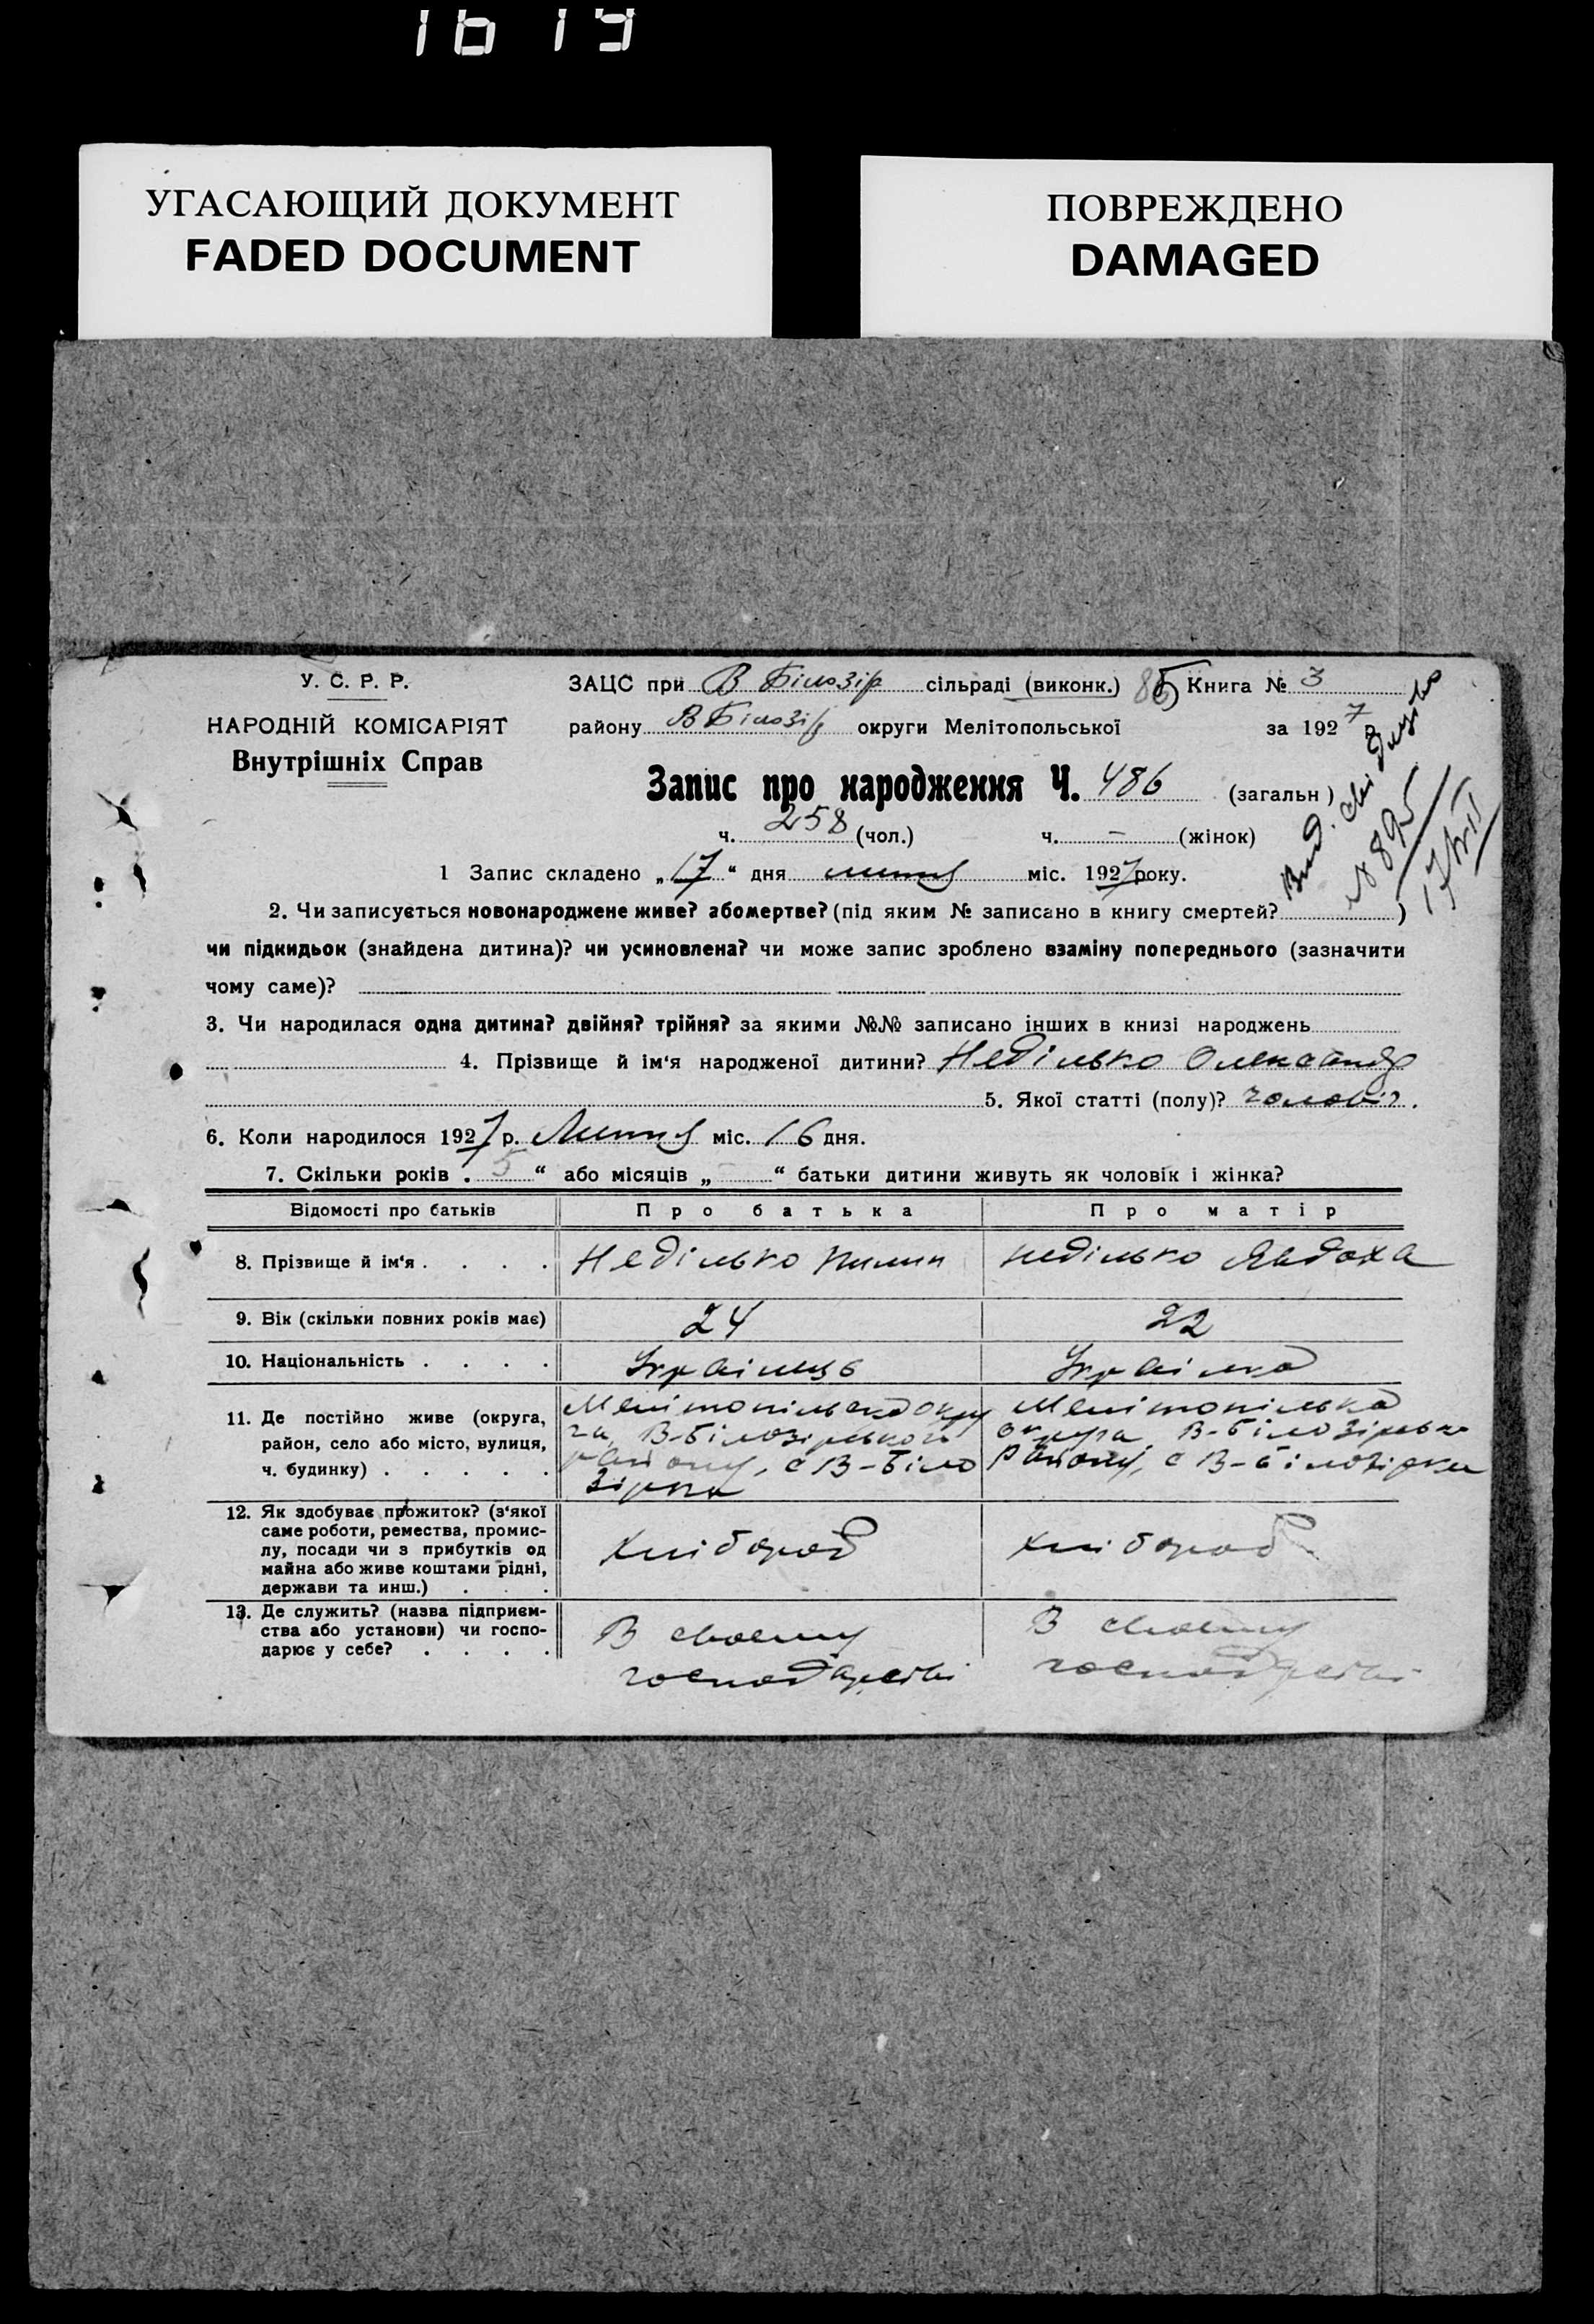 1619
УГАСАЮЩИЙ ДОКУМЕНТ
FADED DOCUMENT
ПОВРЕЖДЕНО
DAMAGED
У. С. Р. Р.
НАРОДНІЙ КОМІСАРІЯТ
Внутрішніх Справ
ЗАЦС при В Білозір сільраді (виконк.) 85 Книга № 3
району В Білозір округи Мелітопольської за 1927
Запис про народження Ч. 486 (загальн)
ч. 258 (чол.) ч. – (жінок)
Вид.
№ 895
17/VII
1 Запис складено „17“ дня липня міс. 1927 року.
2. Чи записується новонароджене живе? або мертве? (під яким № записано в книгу смертей? )
чи підкидьок (знайдена дитина)? чи усиновлена? чи може запис зроблено взаміну попереднього (зазначити
чому саме)?
3. Чи народилася одна дитина? двійня? трійня? за якими №№ записано інших в книзі народжень
4. Прізвище й ім‘я народженої дитини? Неділько Олександр
5. Якої статті (полу)? чоловіч.
6. Коли народилося 1927 р. Липня міс. 16 дня.
7. Скільки років . 5 “ або місяців „ “ батьки дитини живуть як чоловік і жінка?
Відомості про батьків Про батька Про матір
8. Прізвище й ім‘я . . . . Неділько Пилип Неділько Явдоха
9. Вік (скільки повних років має) 24 22
10. Національність . . . . Українець Українка
11. Де постійно живе (округа,
район, село або місто, вулиця,
ч. будинку) . . . . .
Мелітопільська окру
га, В-Білозірського
району, с В-Біло
зірка
Мелітопільска
округа В-Білозірьк
району, с В-Білозірка
12. Як здобуває прожиток? (з‘якої
саме роботи, ремества, промис-
лу, посади чи з прибутків од
майна або живе коштами рідні,
держави та инш.) . . .
Хлібороб Хлібороб
13. Де служить? (назва підприєм-
ства або установи) чи госпо-
дарює у себе? . . . .
В своєму
господарстві
В своєму
господарстві